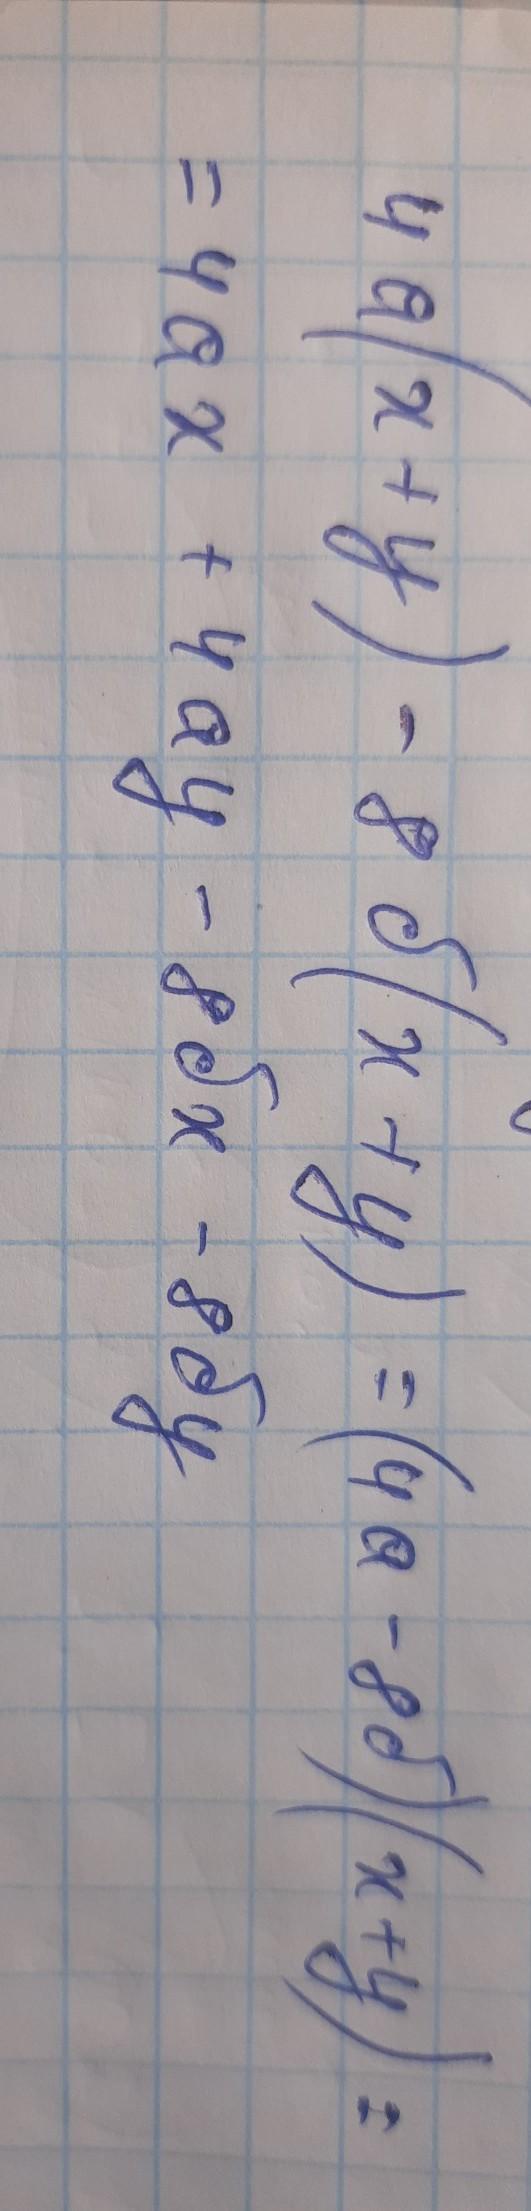 4a(x+y)-8б(x+y)=(4a-8б)(x+y)=
=4ax+4ay-8бx-8бy